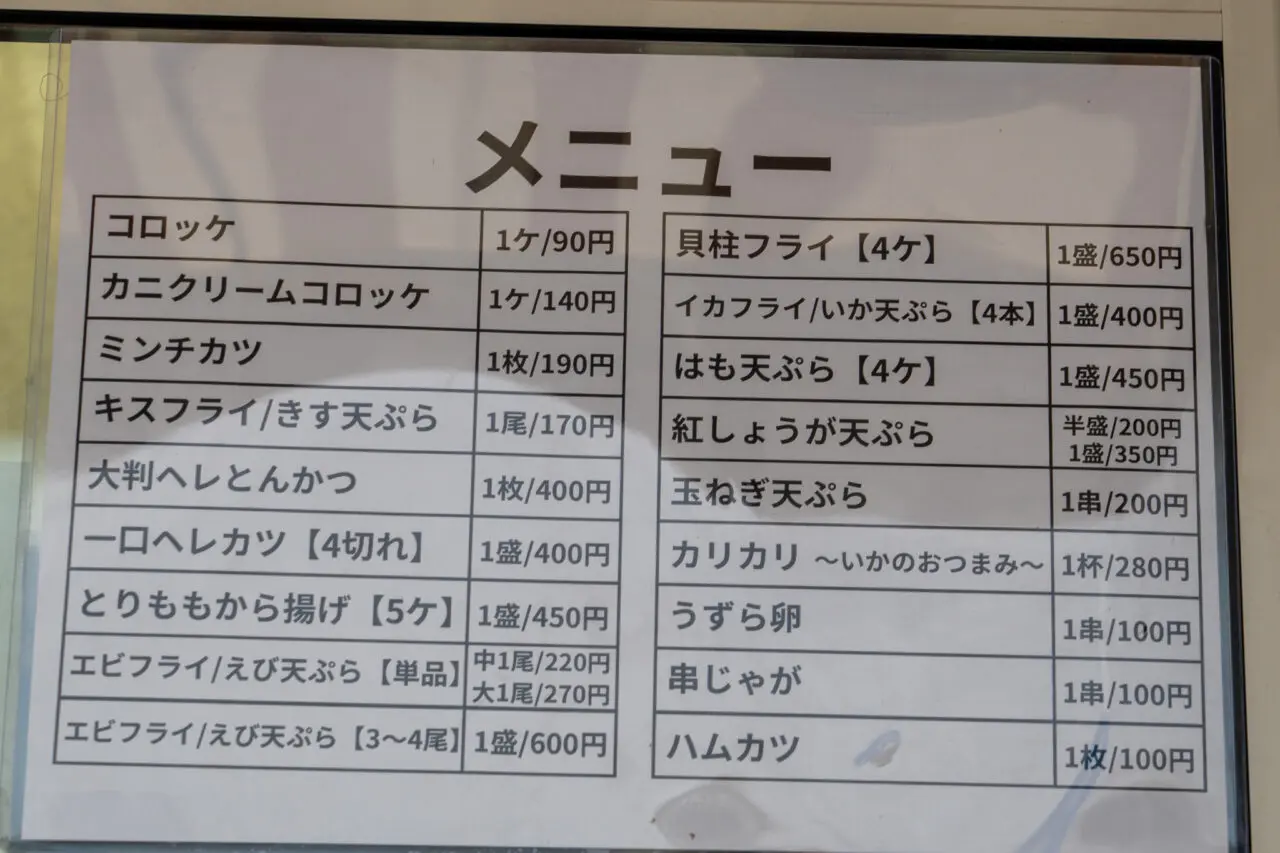 メニュー
コロッケ 1ケ/90円
カニクリームコロッケ 1ケ/140円
ミンチカツ 1枚/190円
キスフライ/きす天ぷら 1尾/170円
大判ヘレとんかつ 1枚/400円
一口ヘレカツ【4切れ】 1盛/400円
とりももから揚げ【5ケ】 1盛/450円
エビフライ/えび天ぷら【単品】 中1尾/220円
大1尾/270円
エビフライ/えび天ぷら【3〜4尾】 1盛/600円
貝柱フライ【4ケ】 1盛/650円
イカフライ/いか天ぷら【4本】 1盛/400円
はも天ぷら【4ケ】 1盛/450円
紅しょうが天ぷら 半盛/200円
1盛/350円
玉ねぎ天ぷら 1串/200円
カリカリ 〜いかのおつまみ〜 1杯/280円
うずら卵 1串/100円
串じゃが 1串/100円
ハムカツ 1枚/100円